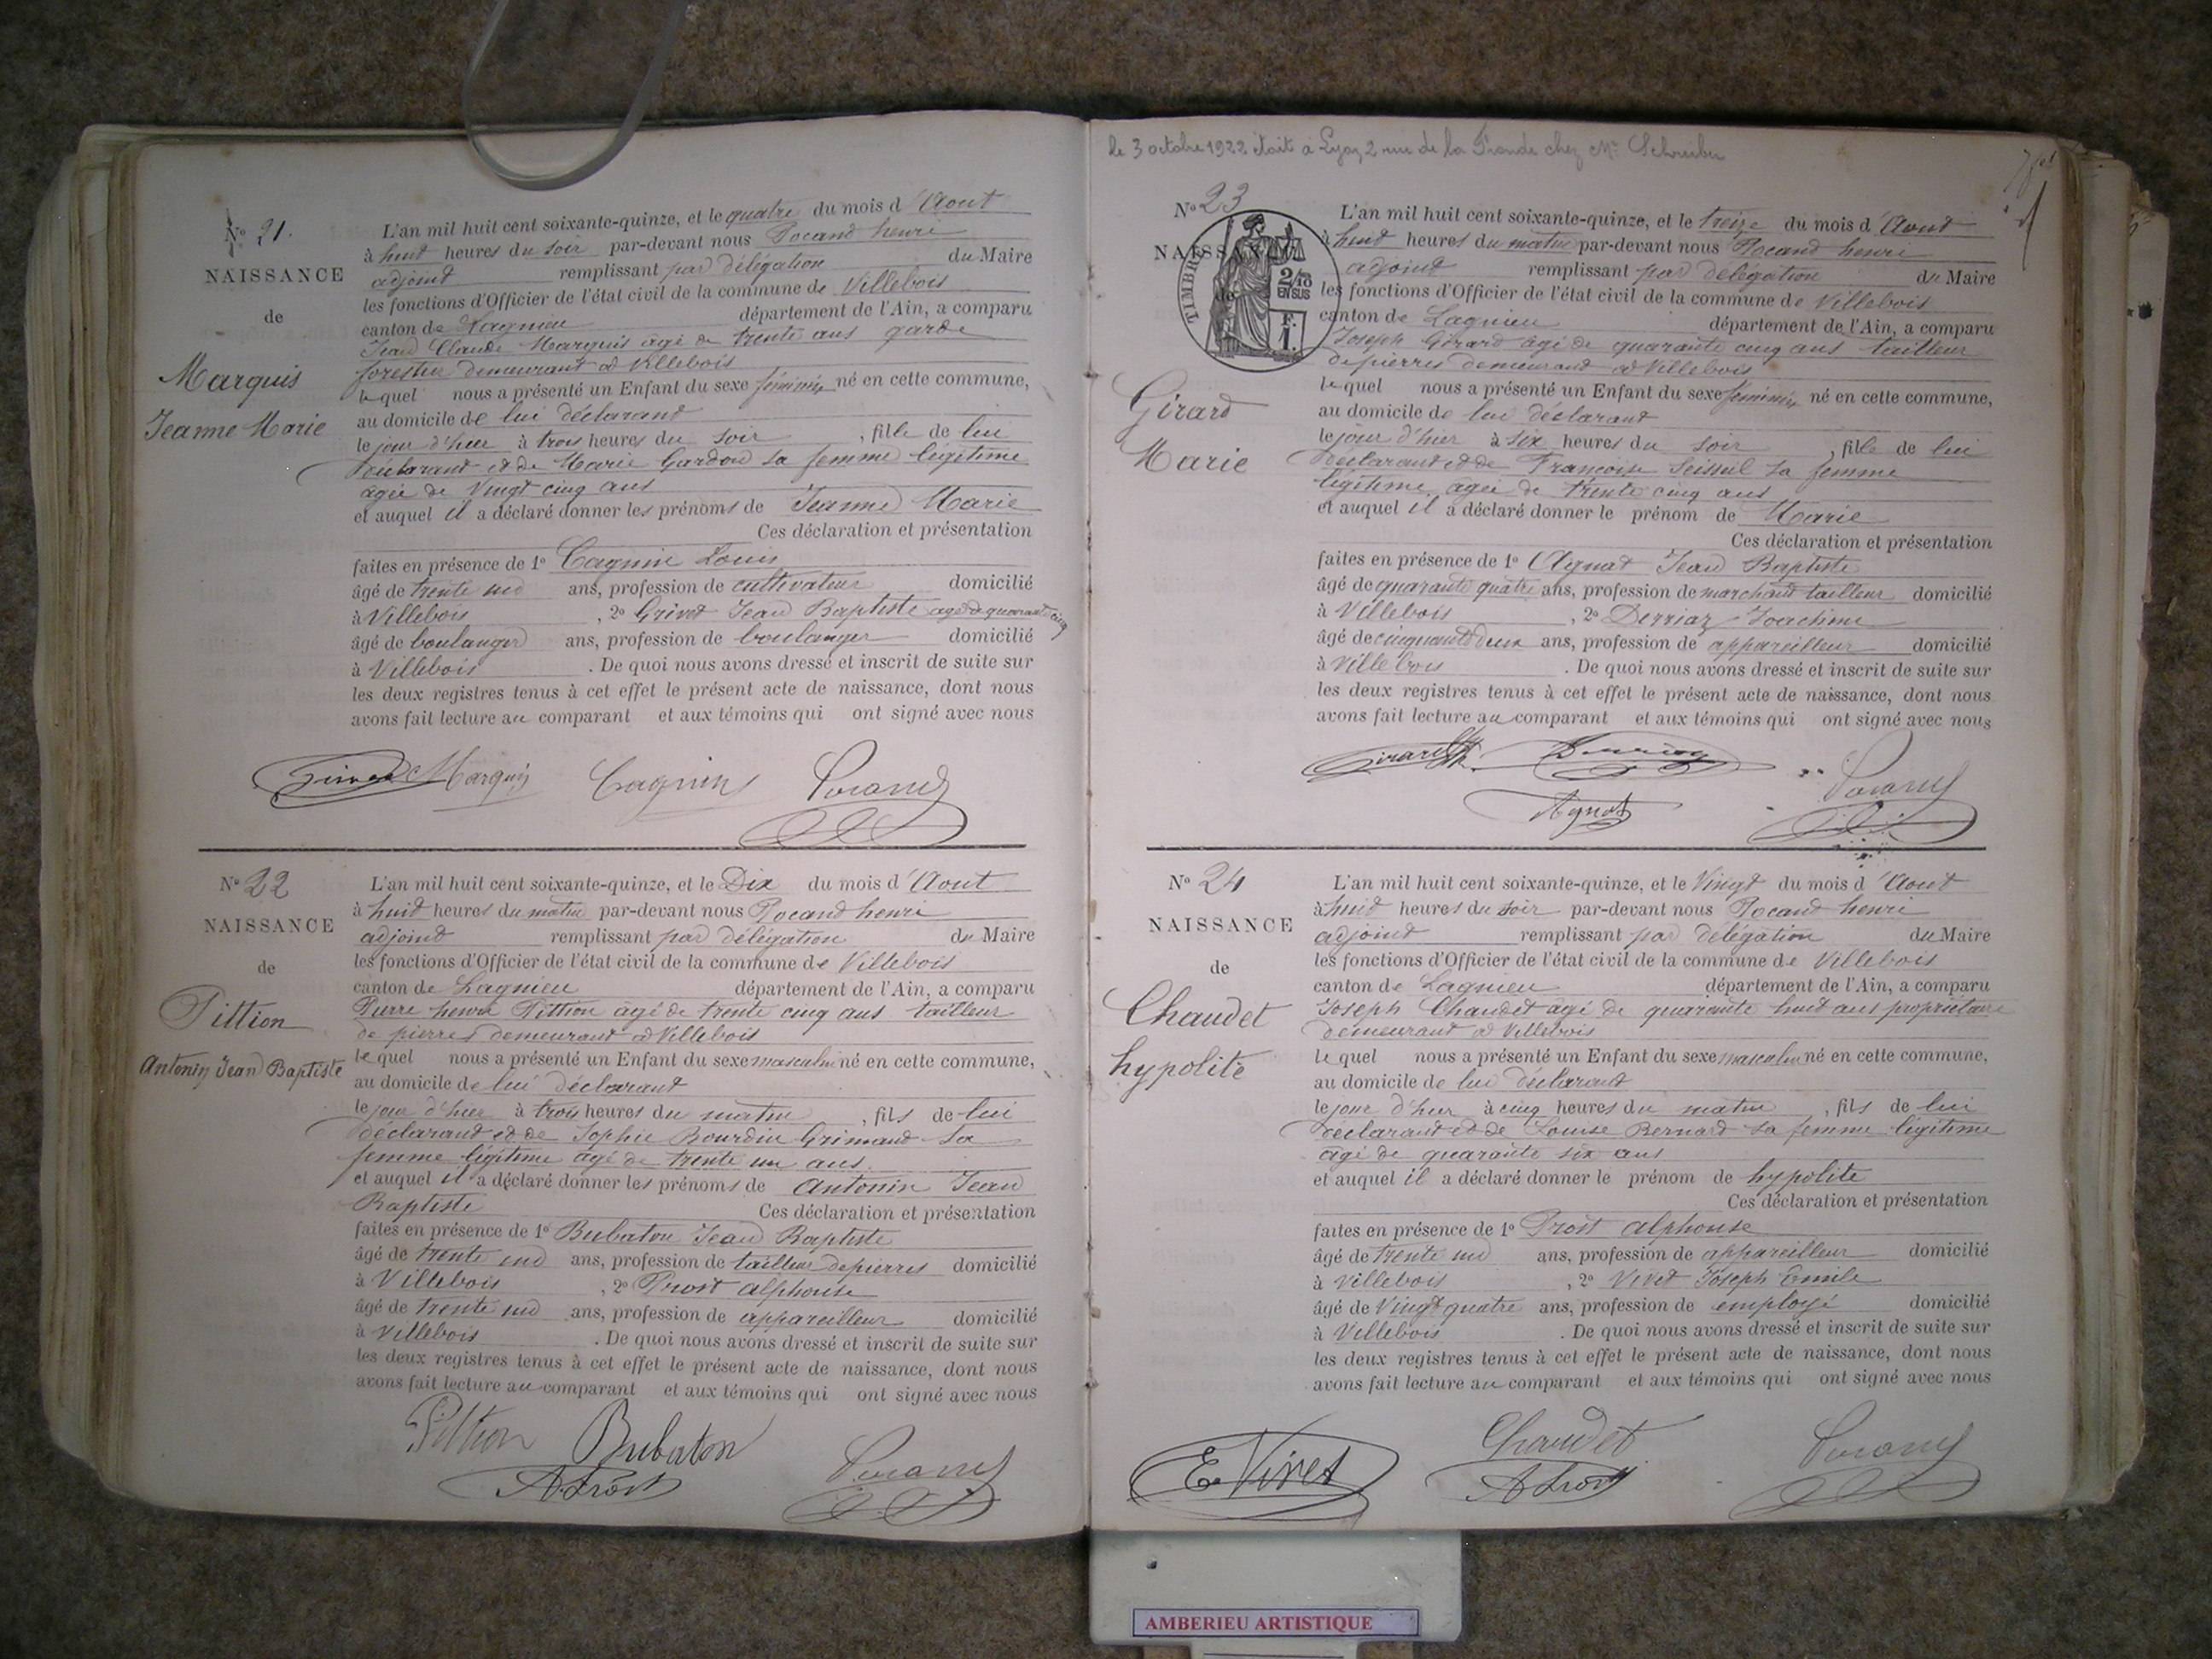 N° 21.
NAISSANCE
de
Marquis
Jeanne Marie
L'an mil huit cent soixante-quinze, et le quatre du mois d'Aout
à huit heures du soir par-devant nous Pocand henri
adjoint remplissant par délégation du Maire
les fonctions d'Officier de l'état civil de la commune de Villebois
canton de Lagnieu département de l'Ain, a comparu
Jean Claude Marquis agé de trente ans garde
forestier demeurant à Villebois
lequel nous a présenté un Enfant du sexe féminin né en cette commune,
au domicile de lui déclarant
le jour d'hier à trois heures du soir, fille de lui
déclarant et de Marie Gardon sa femme légitime
agée de Vingt cinq ans
et auquel il a déclaré donner les prénoms de Jeanne Marie
Ces déclaration et présentation
faites en présence de 1° Cagnin Louis
âgé de trente un ans, profession de cultivateur domicilié
à Villebois, 2° Jean Baptiste agé de quarante cinq
âgé de boulanger ans, profession de boulanger domicilié
à Villebois. De quoi nous avons dressé et inscrit de suite sur
les deux registres tenus à cet effet le présent acte de naissance, dont nous
avons fait lecture au comparant et aux témoins qui ont signé avec nous
Marquis Cagnin Pocand
N° 22
NAISSANCE
de
Pittion
Antonin Jean Baptiste
L'an mil huit cent soixante-quinze, et le Dix du mois d'Aout
à huit heures du matin par-devant nous Pocand henri
adjoint remplissant par délégation du Maire
les fonctions d'Officier de l'état civil de la commune de Villebois
canton de Lagnieu département de l'Ain, a comparu
Pierre henri Pittion agé de trente cinq ans tailleur
de pierres demeurant à Villebois
lequel nous a présenté un Enfant du sexe masculin né en cette commune,
au domicile de lui déclarant
le jour d'hier à trois heures du matin, fils de lui
déclarant et de Sophie Bourdin Grimaud sa
femme légitime agé de trente un ans.
et auquel il a déclaré donner les prénoms de Antonin Jean
Baptiste Ces déclaration et présentation
faites en présence de 1° Bubaton Jean Baptiste
âgé de trente un ans, profession de tailleur de pierres domicilié
à Villebois, 2° Prost alphonse
âgé de trente un ans, profession de appareilleur domicilié
à Villebois. De quoi nous avons dressé et inscrit de suite sur
les deux registres tenus à cet effet le présent acte de naissance, dont nous
avons fait lecture au comparant et aux témoins qui ont signé avec nous
Pittion Bubaton
A Prost Pocand
le 3 octobre 1922 était à Lyon 2 rue de la Fronde chez Mr Schreiber
N° 23
NAISSANCE
de
TIMBRE
2/10
EN SUS
F.
1.
Girard
Marie
L'an mil huit cent soixante-quinze, et le treize du mois d'Aout
à huit heures du matin par-devant nous Pocand henri
adjoint remplissant par délégation du Maire
les fonctions d'Officier de l'état civil de la commune de Villebois
canton de Lagnieu département de l'Ain, a comparu
Joseph Girard agé de quarante cinq ans tailleur
de pierres demeurant à Villebois
lequel nous a présenté un Enfant du sexe féminin né en cette commune,
au domicile de lui déclarant
le jour d'hier à six heures du soir, fille de lui
déclarant et de Françoise sa femme
légitime agée de trente cinq ans
et auquel il a déclaré donner le prénom de Marie
Ces déclaration et présentation
faites en présence de 1° Agnat Jean Baptiste
âgé de quarante quatre ans, profession de marchand tailleur domicilié
à Villebois, 2° Derriaz Joachim
âgé de cinquante deux ans, profession de appareilleur domicilié
à Villebois. De quoi nous avons dressé et inscrit de suite sur
les deux registres tenus à cet effet le présent acte de naissance, dont nous
avons fait lecture au comparant et aux témoins qui ont signé avec nous
Girard Derriaz
Agnat Pocand
N° 24
NAISSANCE
de
Chaudet
hypolite
L'an mil huit cent soixante-quinze, et le Vingt du mois d'Aout
à huit heures du soir par-devant nous Pocand henri
adjoint remplissant par délégation du Maire
les fonctions d'Officier de l'état civil de la commune de Villebois
canton de Lagnieu département de l'Ain, a comparu
Joseph Chaudet agé de quarante huit ans propriétaire
demeurant à Villebois
lequel nous a présenté un Enfant du sexe masculin né en cette commune,
au domicile de lui déclarant
le jour d'hier à cinq heures du matin, fils de lui
déclarant et de Louise Bernard sa femme légitime
agé de quarante six ans
et auquel il a déclaré donner le prénom de hypolite
Ces déclaration et présentation
faites en présence de 1° Prost alphonse
âgé de trente un ans, profession de appareilleur domicilié
à Villebois, 2° Vivet Joseph Emile
âgé de Vingt quatre ans, profession de employé domicilié
à Villebois. De quoi nous avons dressé et inscrit de suite sur
les deux registres tenus à cet effet le présent acte de naissance, dont nous
avons fait lecture au comparant et aux témoins qui ont signé avec nous
E. Vivet Chaudet
A Prost Pocand
AMBERIEU ARTISTIQUE